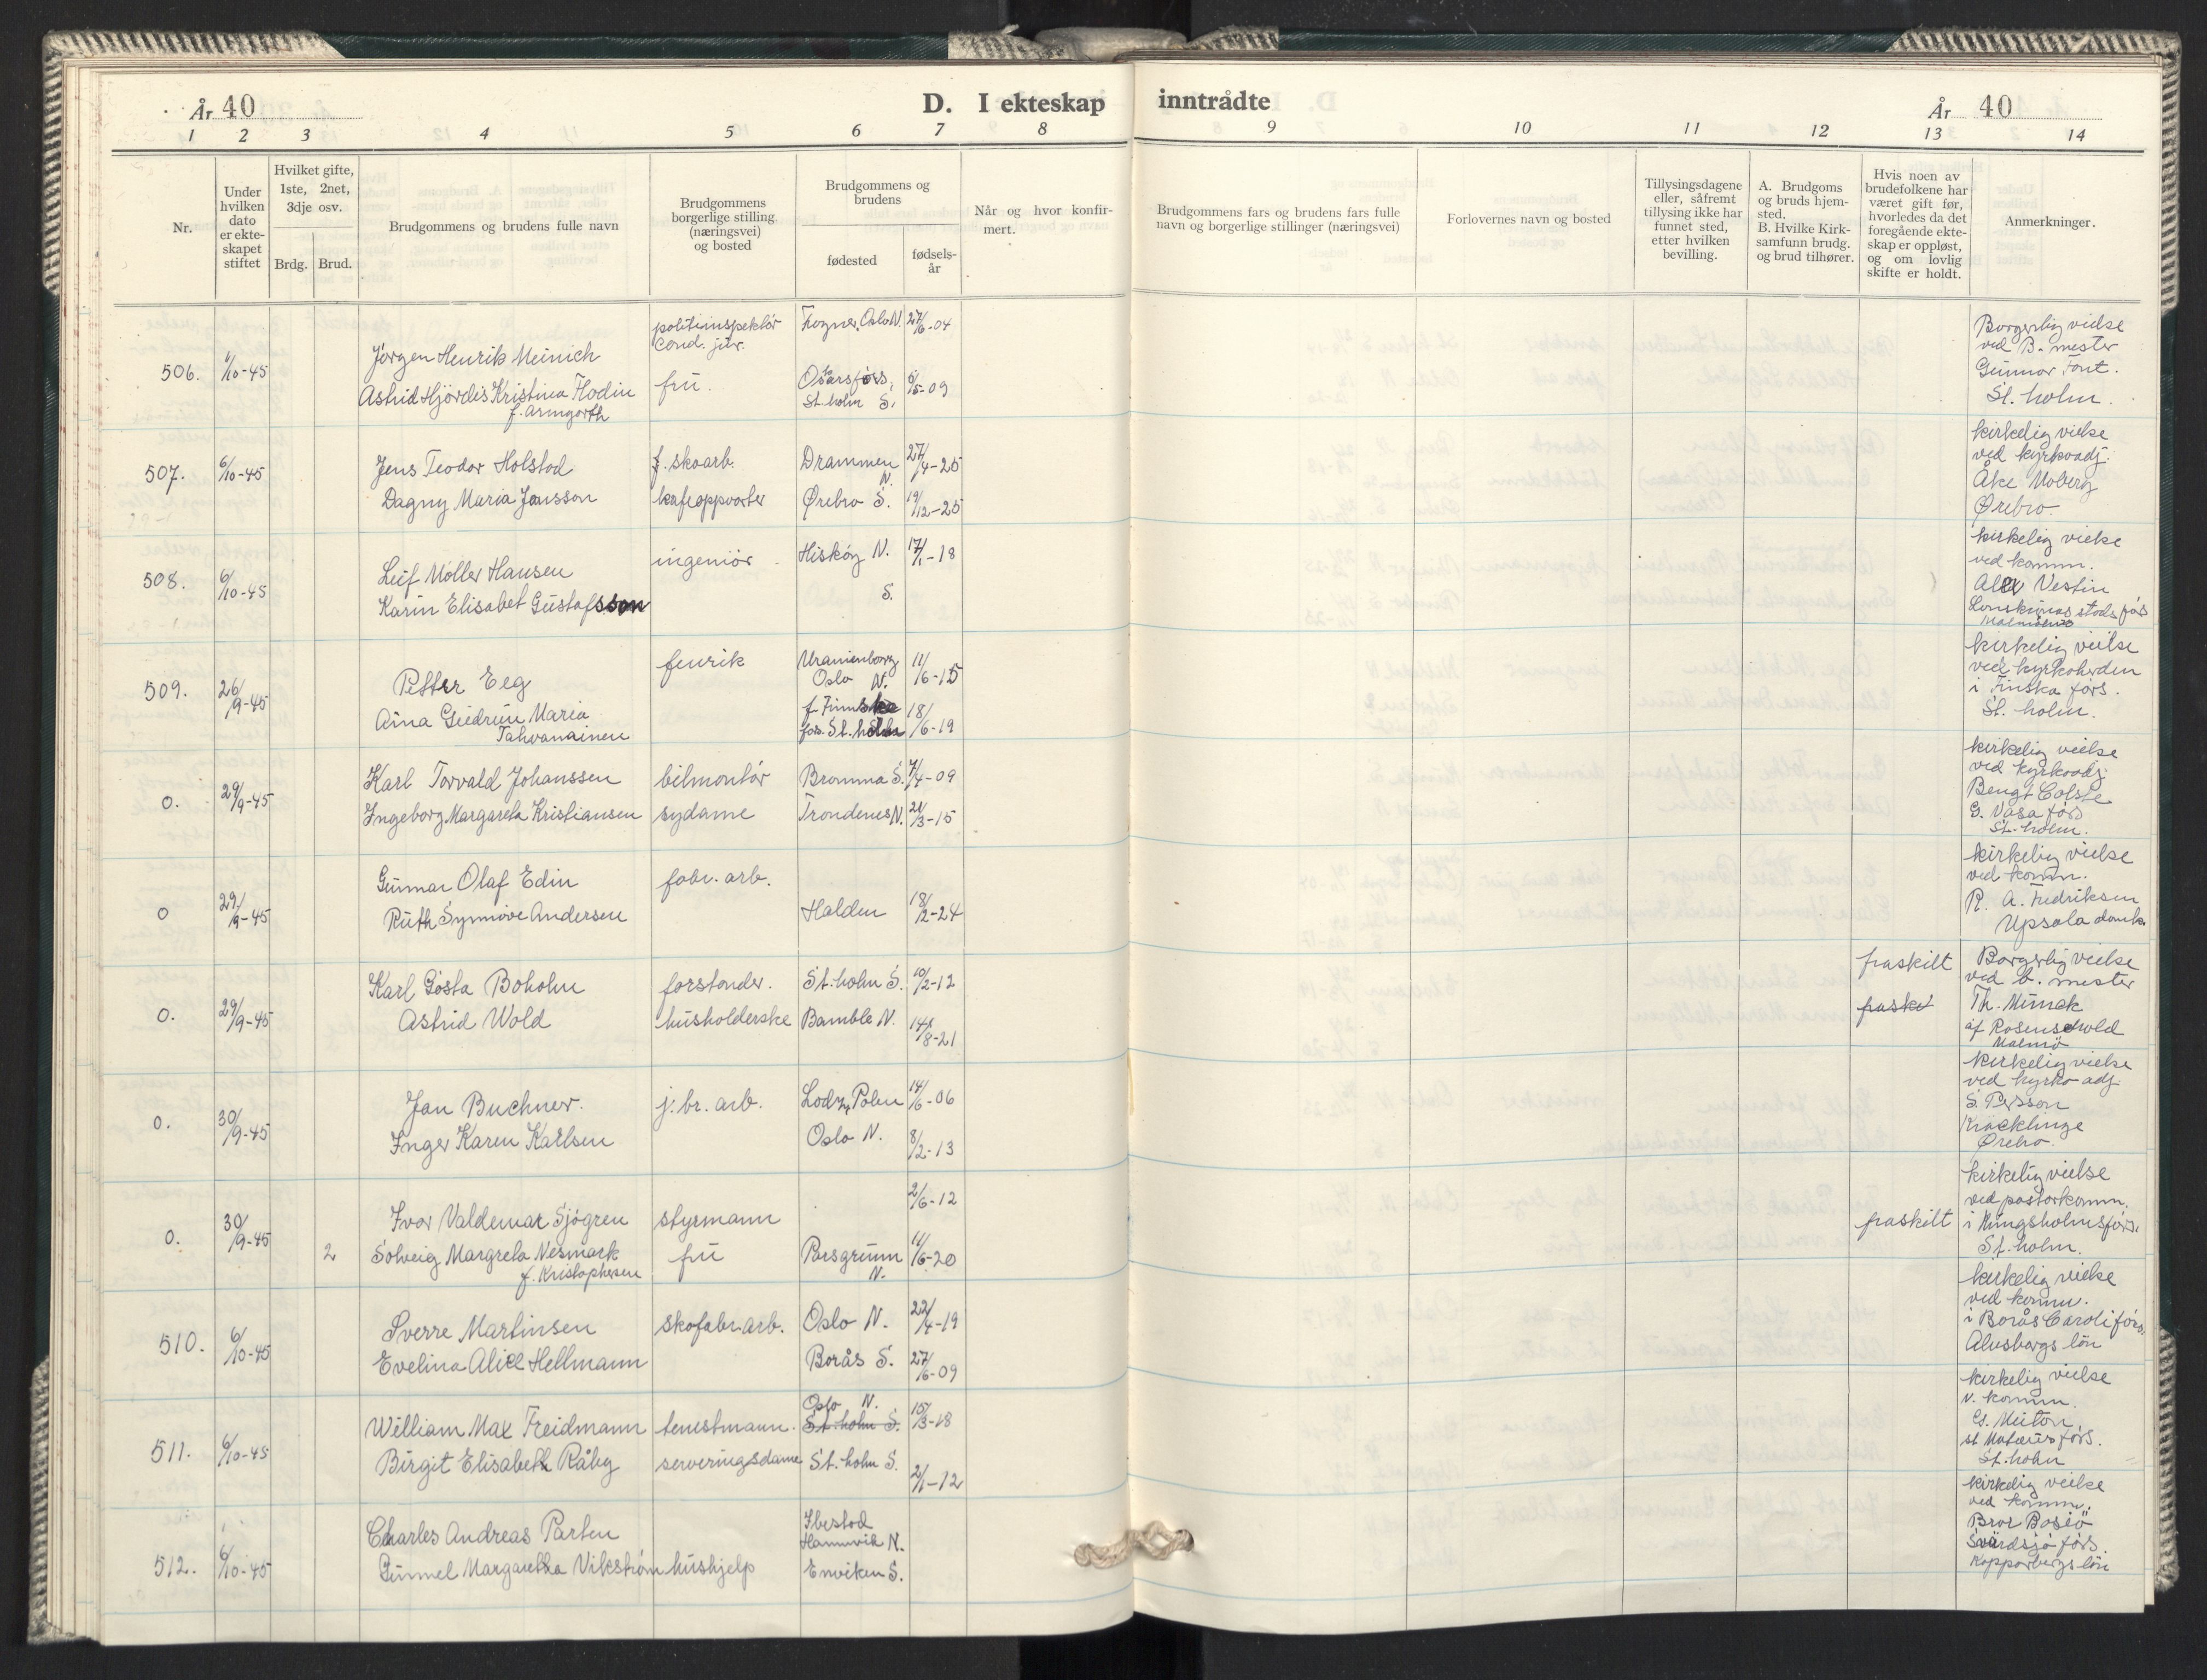 År 40
D. I ekteskap inntrådte
År 40
1 2 3 4 5 6 7 8 9 10 11 12 13 14
Nr.
Under hvilken dato er ekteskapet stiftet
Hvilket gifte, 1ste, 2net, 3dje osv.
Brdg. Brud.
Brudgommens og brudens fulle navn
Brudgommens borgerlige stilling (næringsvei) og bosted
Brudgommens og brudens
fødested
fødselsår
Når og hvor konfirmert.
Brudgommens fars og brudens fars fulle navn og borgerlige stillinger (næringsvei)
Forlovernes navn og bosted
Tillysingsdagene eller, såfremt tillysing ikke har funnet sted, etter hvilken bevilling.
A. Brudgoms og bruds hjemsted. B. Hvilke Kirksamfunn brudg. og brud tilhører.
Hvis noen av brudefolkene har været gift før, hvorledes da det foregående ekteskap er oppløst, og om lovlig skifte er holdt.
Anmerkninger.
506. 1/10-45
Jörgen Henrik Meinich
politiinspektör cand. jur.
Frogner, Oslo N. 27/6-04
Astrid Hjördis Kristina Flodin f. Armgarth
fru.
Oscarsförs. St. holm S. 6/5-09
Borgerlig vielse
ved B. mester
Gunnar Fant.
St. holm.
507. 6/10-45
Jens Teodor Holstad
f. skoarb.
Drammen N. 27/4-25
Dagny Maria Jansson
kafeoppvarter
Ørebro S. 19/12-25
kirkelig vielse
ved kyrkoadj.
Åke Moberg
Ørebro.
508. 6/10-45
Leif Möller Hansen
ingeniör
Hiskøy N. 17/1-18
Karin Elisabet Gustafsson
S.
kirkelig vielse
ved komm.
Alex Vestin
509. 26/9-45
Petter Eeg
fenrik
Uranienborg Oslo N. 11/6-15
Aina Gudrun Maria Tahvanainen
f. Finska förs. St. holm 18/6-19
kirkelig vielse
ved kyrkoherden
i Finska förs.
St. holm.
0. 29/9-45
Karl Torvald Johanssen
bilmontör
Bromma S. 7/4-09
Ingeborg Margareta Kristiansen
sydame
Trondenes N. 21/3-15
kirkelig vielse
ved kyrkoadj.
Bengt Colste
G. Vasa förs
St. holm.
0 29/9-45
Gunnar Olaf Edin
fabr. arb.
Ruth Synnöve Andersen
Halden 18/2-24
kirkelig vielse
ved komm.
R. A. Fredriksen
Upsala domk.
0. 29/9-45
Karl Gösta Boholm
forstander.
St. holm S. 10/2-12
Astrid Wold
husholderske
Bamble N. 14/8-21
fraskilt
fraskil
Borgerlig vielse
ved b. mester
Th. Munck
af Rosenschold
Malmö
0. 30/9-45
Jan Buchner.
j. br. arb.
Lodz, Polen 14/6-06
Inger Karen Karlsen
Oslo N. 8/2-13
kirkelig vielse
ved kyrko adj.
S. Persson
Kräcklinge
Örebro.
0. 30/9-45 2
Ivar Valdemar Sjögren
styrmann
2/6-12
Solveig Margreta Nesmark f. Kristophersen
fru
Porsgrunn N. 11/6-20
fraskilt
kirkelig vielse
ved pastorkomm.
i Kungsholmsförs.
St. holm.
510. 6/10-45
Sverre Martinsen
skofabr. arb.
Oslo N. 22/4-19
Evelina Alice Hellmann
Borås S. 27/6-09
kirkelig vielse
ved komm.
i Borås Caroli förs.
Alvsborgs län
511. 6/10-45
William Max Freidmann
tenestmann.
Oslo N.
St. holm S. 15/3-18
Birgit Elisabeth Råby
serveringsdame
St. holm S. 2/1-12
kirkelig vielse
v. komm.
St. holm
512. 6/10-45
Charles Andreas Parten
Ibestad Hamnvik N.
Gunnel Margaretha Vikström
hushjelp
Enviken S.
kirkelig vielse
ved komm.
Bror Bosiö
Svärdsjö förs.
Kopparbergs län